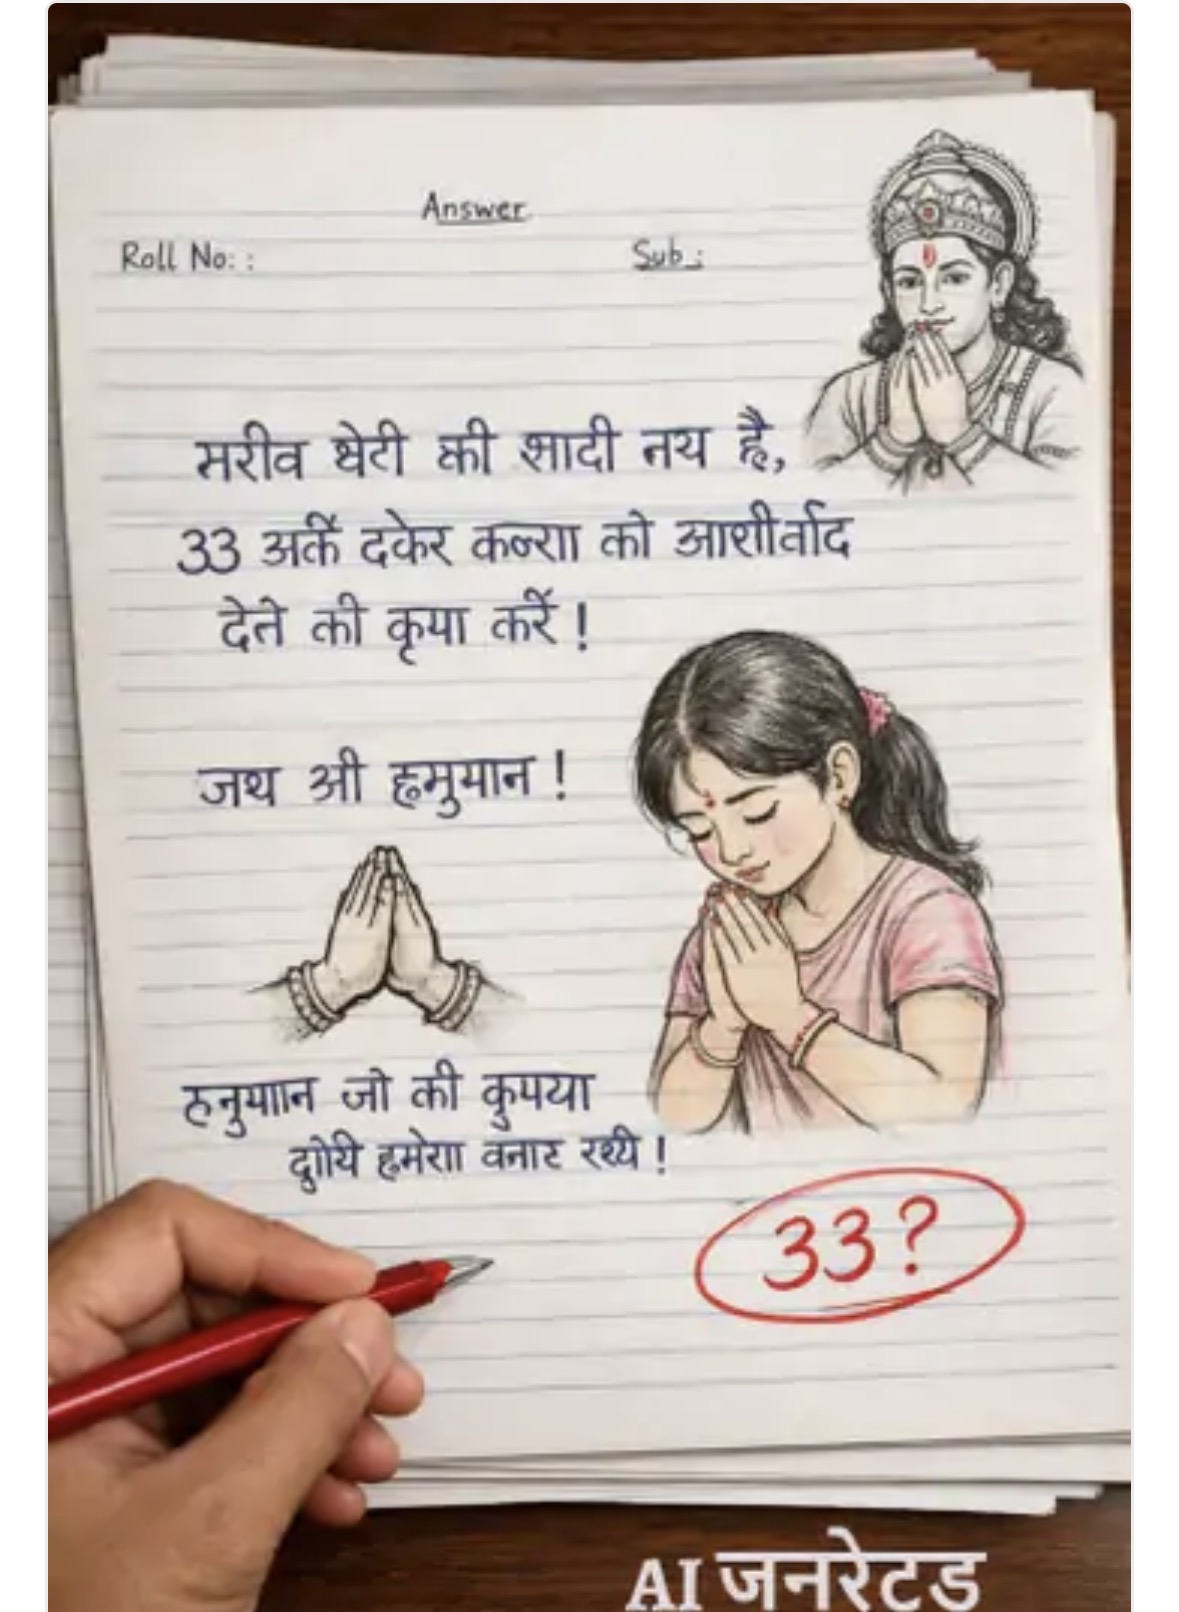 Answer
Roll No: :
Sub :
मरीव थेटी की शादी नय है,
33 अर्कें दकेर कन्शा को आशीर्वाद
देते की कृपा करें !
जथ श्री हमुयान !
हनुमाान जो की कुपया
हमेशा वनार रथ्यी !
33?
AI जनरेटड